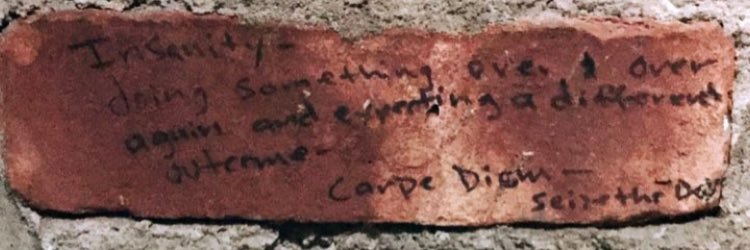 Insanity -
doing something over & over
again and expecting a different
outcome -
Carpe Diem -
seize the Day